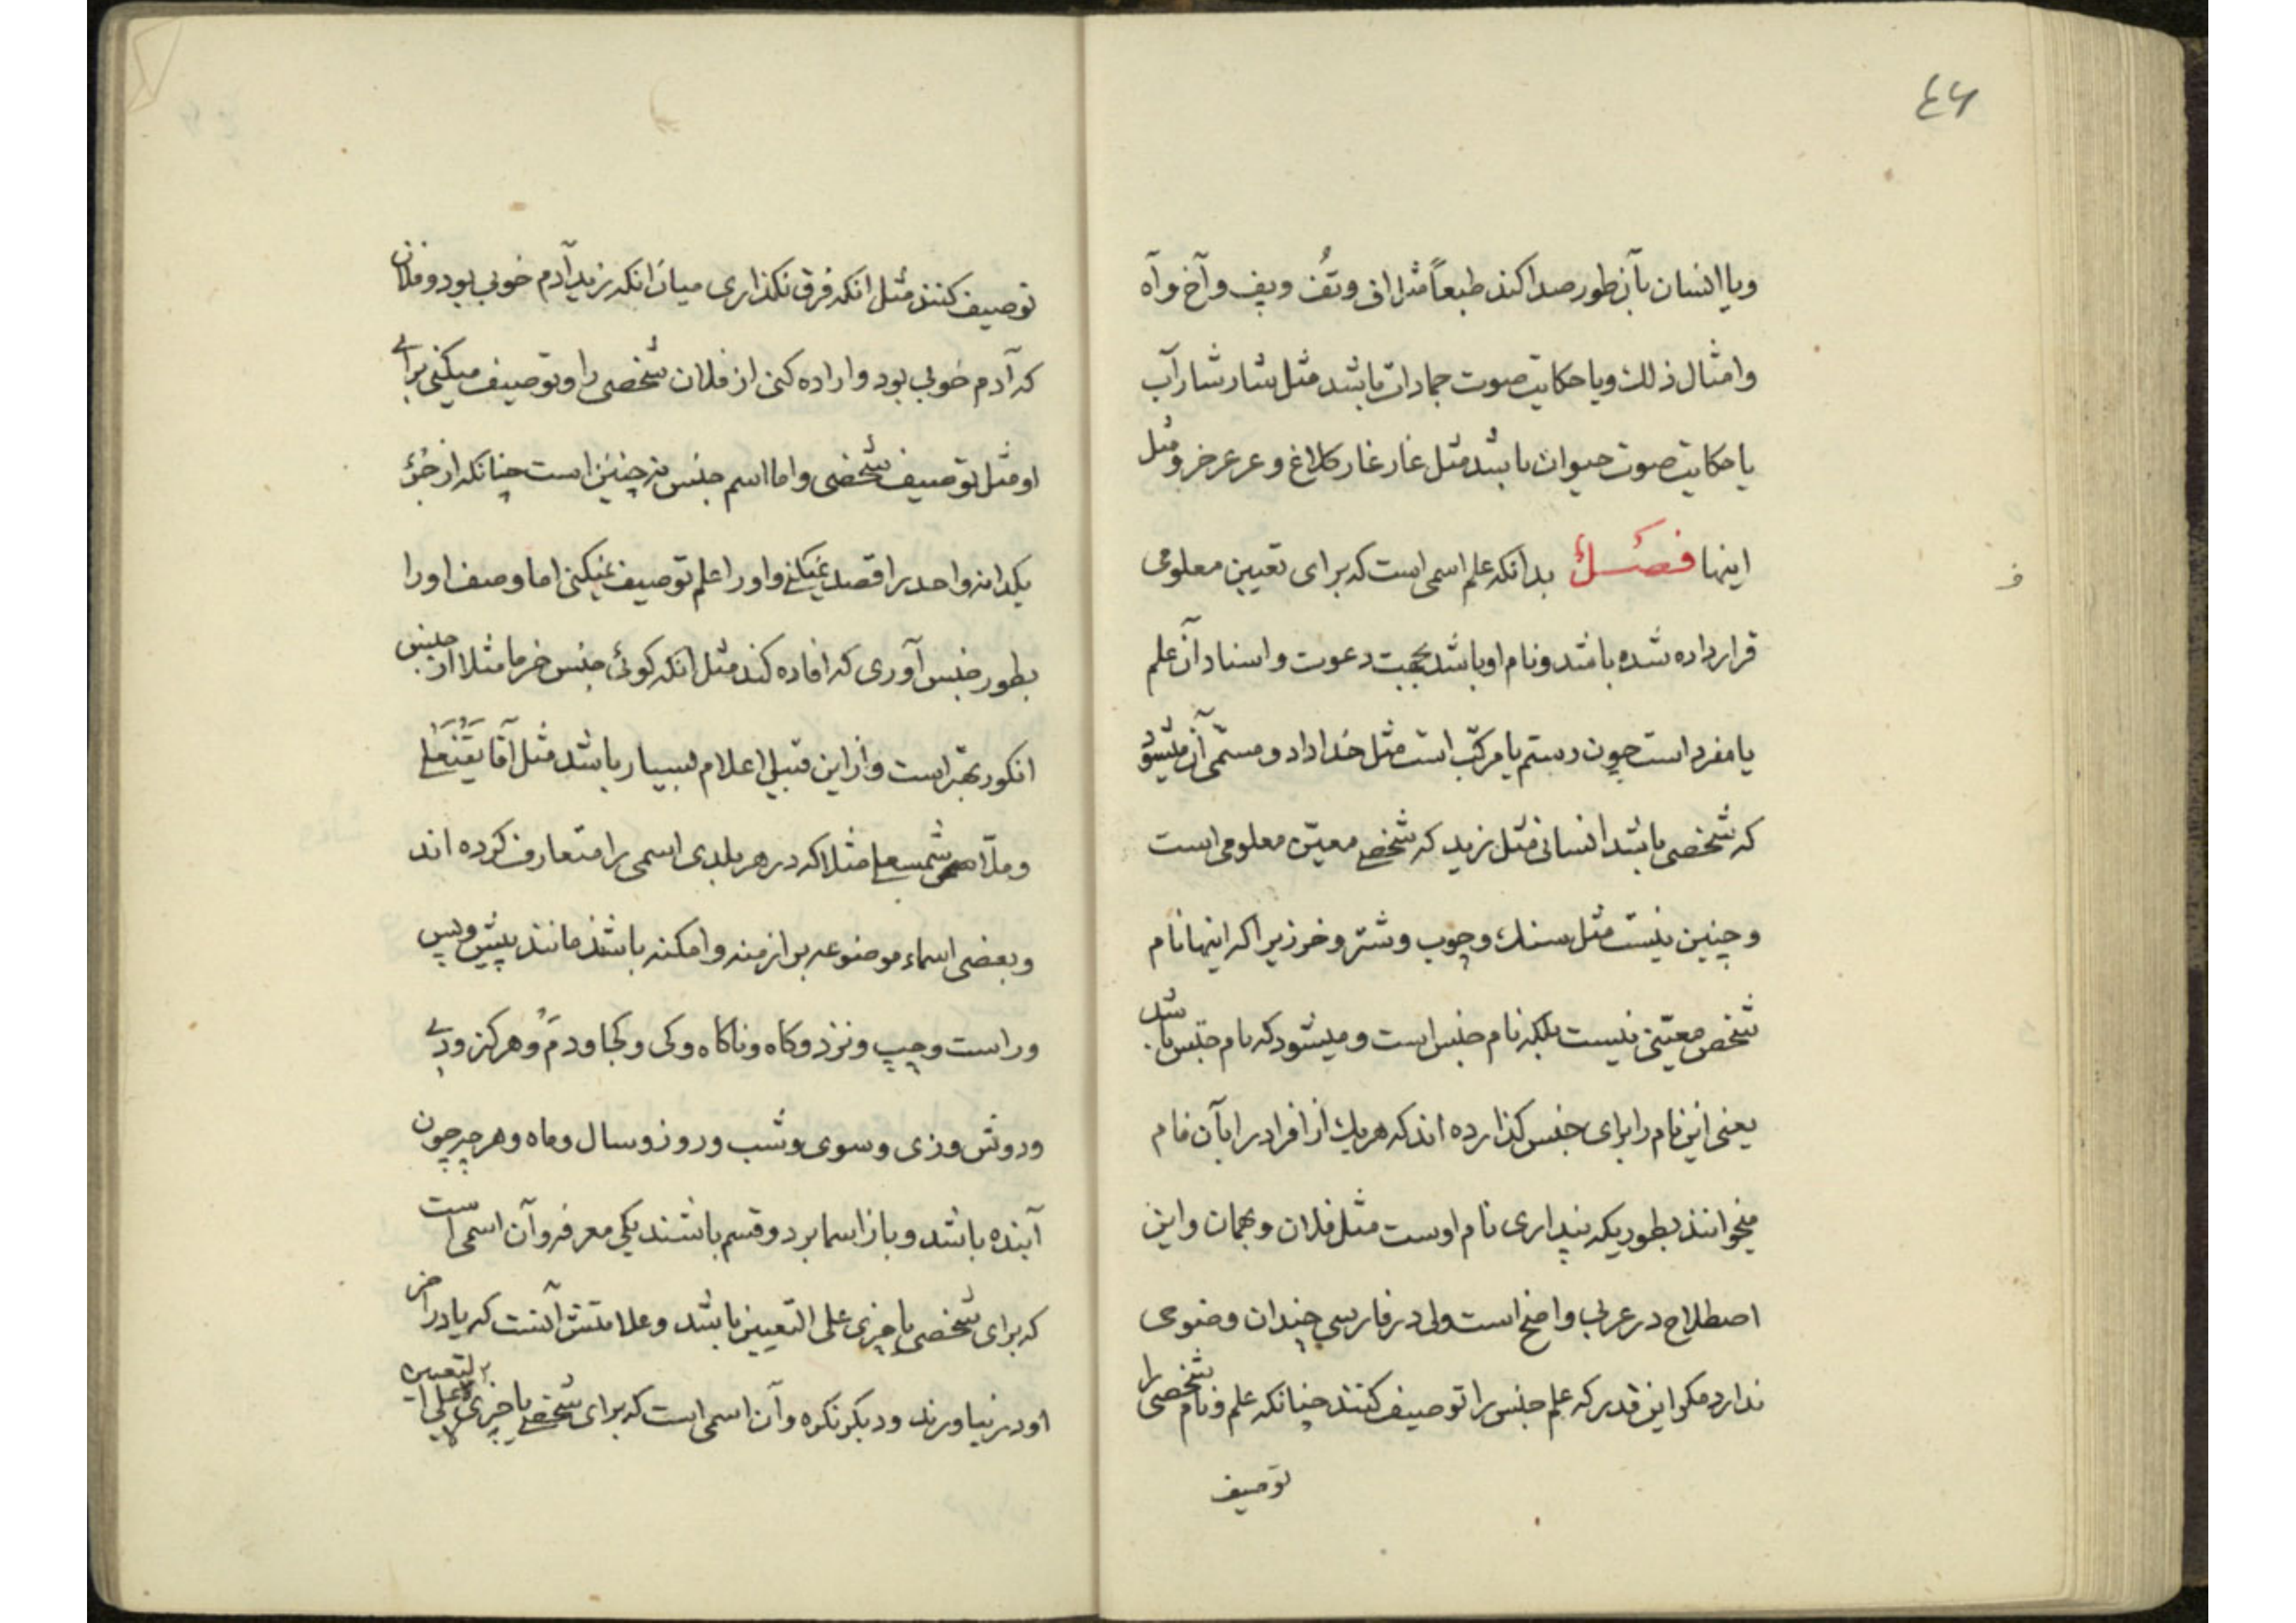 ٤۶
ویا انسان بآنطور صدا کند طبعاً مثل اف وتُف وپف وآخ وآه
وامثال ذلك ویا حکایت صوت جمادات باشد مثل شار شار آب
یا حکایت صوت حیوان باشد مثل غار غار کلاغ وعر عر خر ومثل
اینها فصل بدانکه علم اسمی است که برای تعیین معلومی
قرار داده شده باشد ونام او باشد بجهت دعوت واسناد وآن علم
یا مفرد است چون رستم یا مرکّب است مثل خداداد ومسمّی آن میشود
که شخصی باشد انسانی مثل زید که شخص معیّن معلومی است
وچنین نیست مثل سنك وچوب وشتر وخر زیرا که اینها نام
شخص معیّنی نیست بلکه نام جنس است ومیشود که نام جنس باشد
یعنی این نام را برای جنس کذارده اند که هر یك از افراد را بآن نام
میخوانند بطوریکه پنداری نام اوست مثل فلان وبهمان واین
اصطلاح در عربی واضح است ولی در فارسی چندان وضوحی
ندارد مکر این قدر که علم جنس را توصیف کنند چنانکه علم ونام شخصی را
توصیف
ف
توصیف کنند مثل انکه فرق نکذاری میان انکه زید آدم خوبی بود وفلان
که آدم خوبی بود واراده کنی از فلان شخصی را وتوصیف میکنی برای
او مثل توصیف شخصی واما اسم جنس نه چنین است چنانکه از خر
یکدانه واحد را قصد نمیکنی واو را علم توصیف نمیکنی اما وصف او را
بطور جنس آوری که افاده کند مثل انکه کوئی جنس خرما مثلا از جنس
انکور بهتر است واز این قبیل اعلام بسیار باشد مثل آقا
وملّا شمسعلی مثلا که در هر بلدی اسمی را متعارف کرده اند
وبعضی اسماء موضوعه بر ازمنه وامکنه باشند مانند پیش وپس
وراست وچپ ونزد وکاه وناکاه وکی وکجا ودم وهرکز ودی
ودوش وزی وسوی وشب وروز وسال وماه وهرچه چون
آینده باشد وباز اسما بر دو قسم باشند یکی معرفه وآن اسمی است
که برای شخصی یا چیزی علی التعیین باشد وعلامتش آنست که یا در اخر
او در نیاورند ودیکر نکره وآن اسمی است که برای شخصی یا چیزی لا علی التعیین